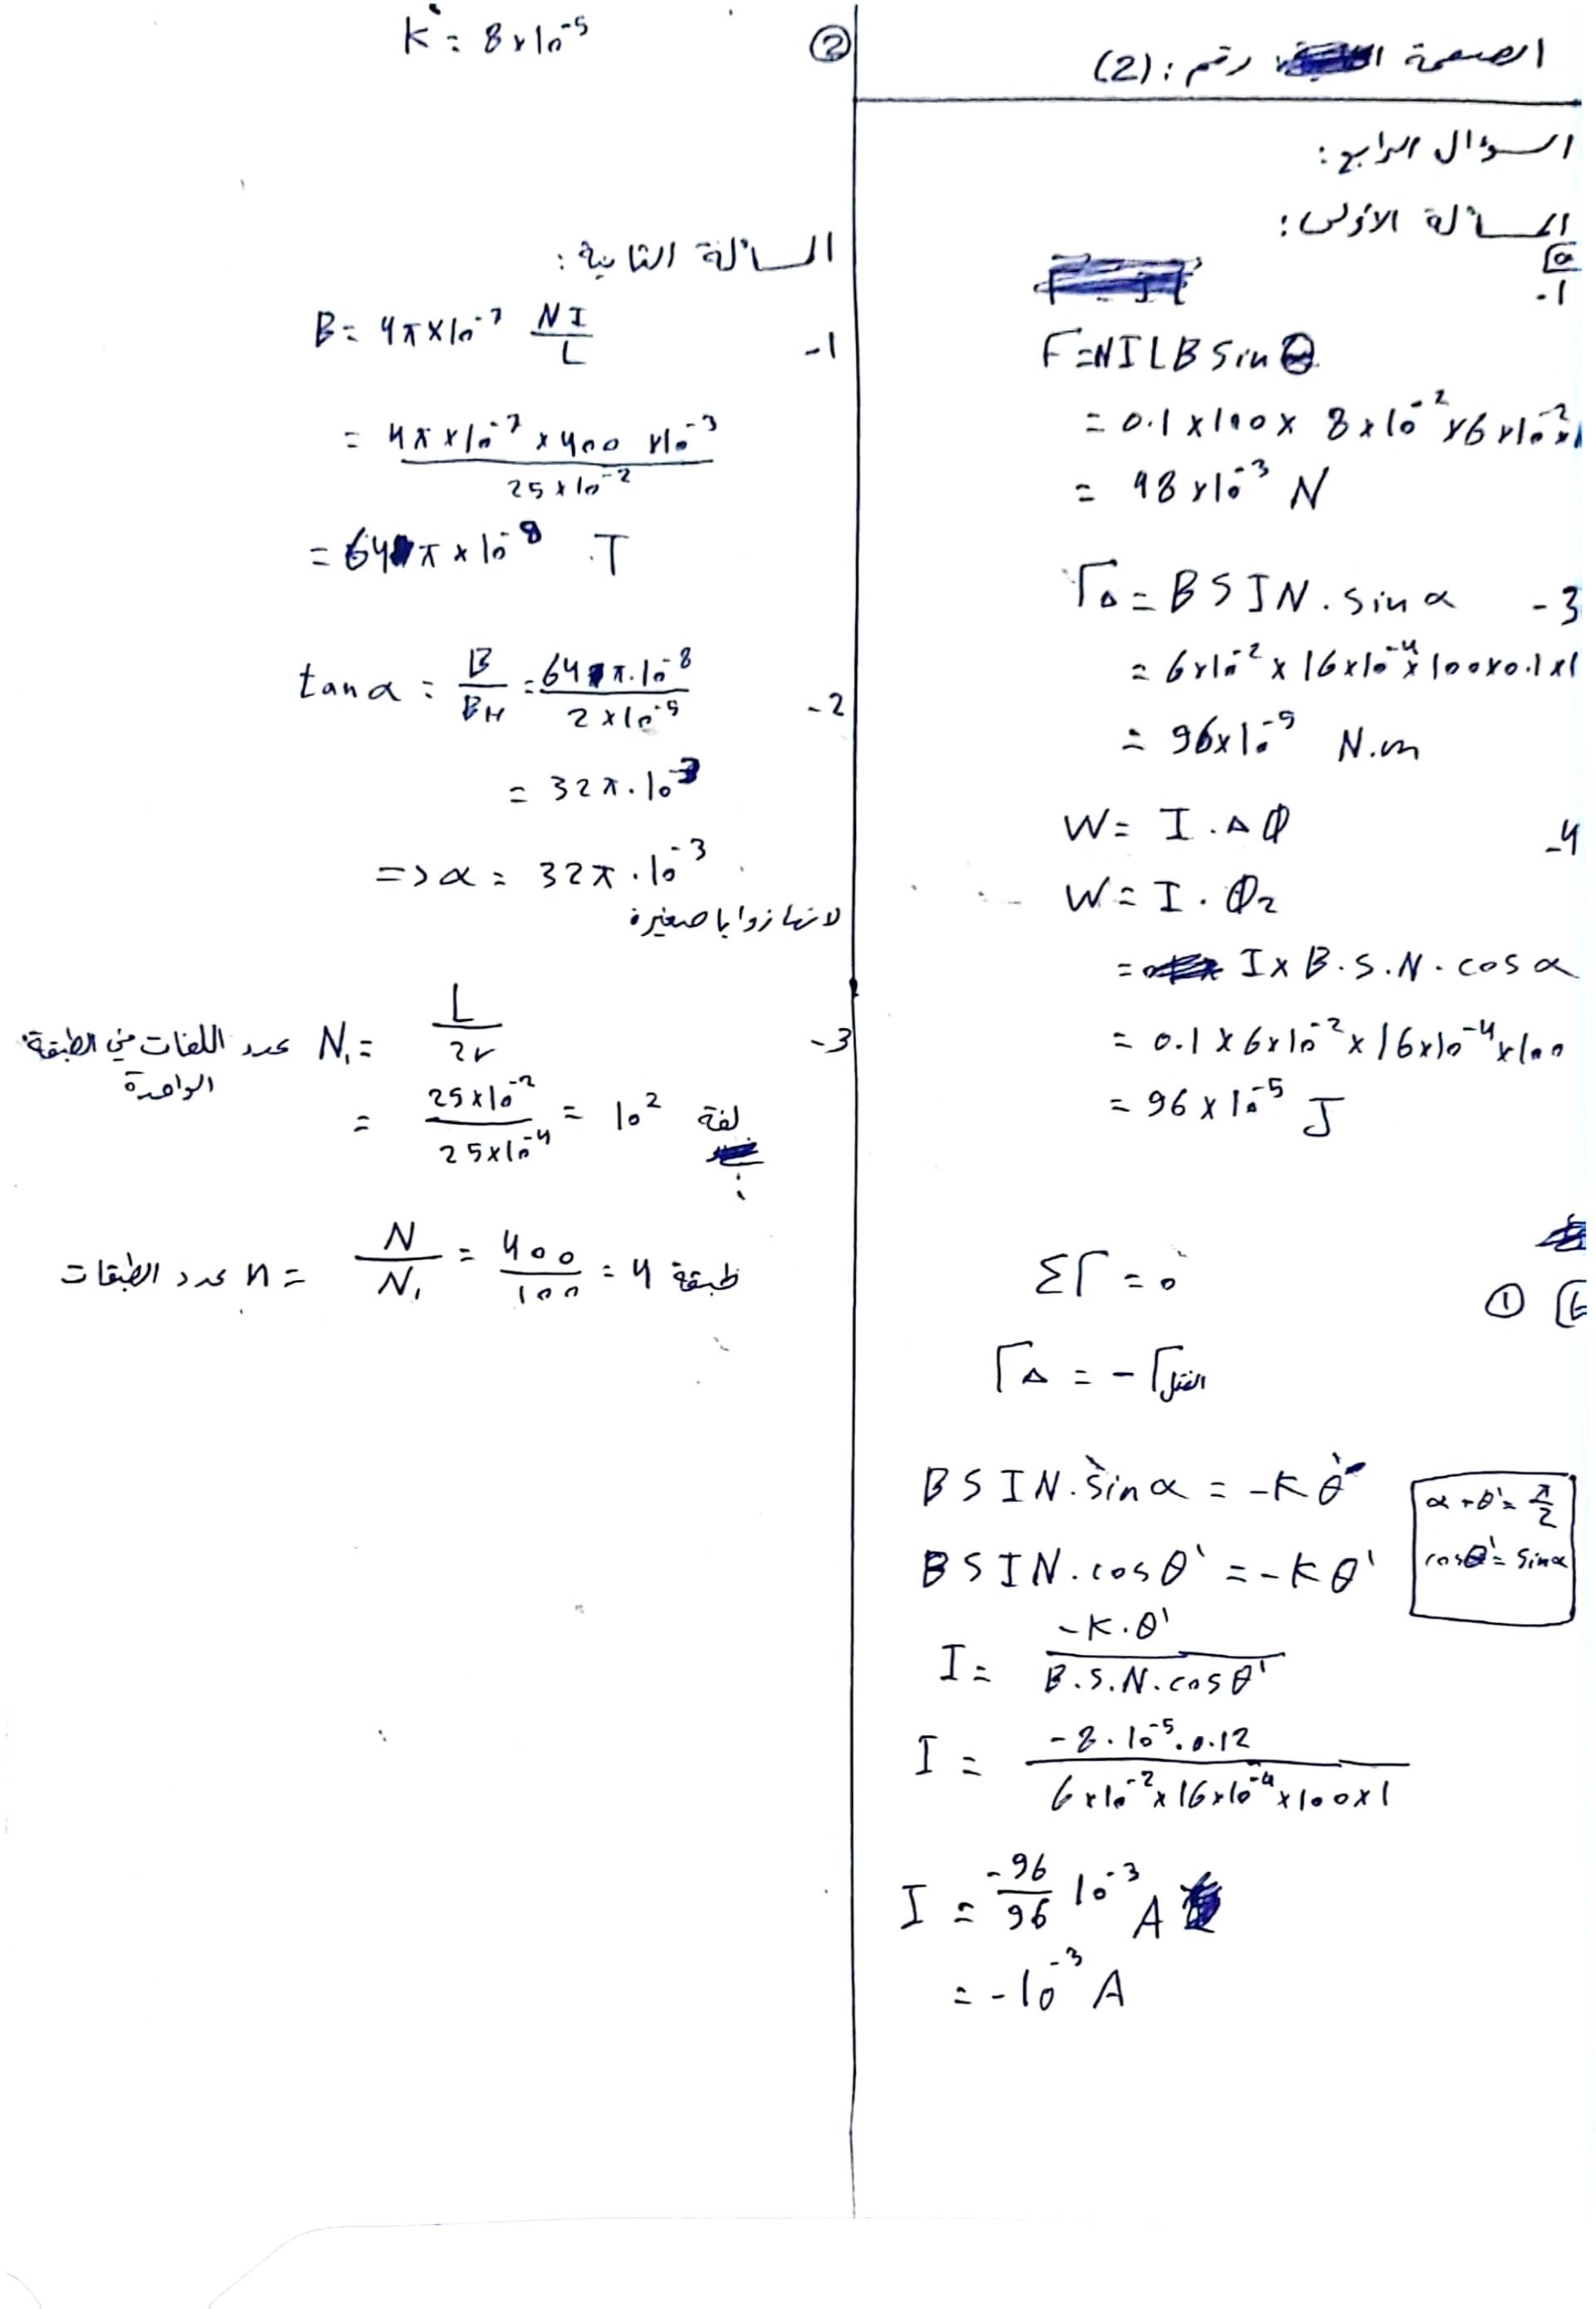 الصفحة رقم: (2)
السؤال الرابع:
المسألة الأولى:
a
-1
F=NILB Sin θ
= 0.1 x100 x 8x10^-2 x6x10^-2 x1
= 48 x10^-3 N
-3 Γ∆ = B S I N . sin α
= 6x10^-2 x 16x10^-4 x100x0.1x1
= 96x10^-5 N.m
-4 W= I . ∆ Φ
W= I . Φ2
= I x B . S . N . cos α
= 0.1 x 6x10^-2 x 16x10^-4 x100
= 96 x 10^-5 J
b ① ΣΓ = 0
Γ∆ = - Γالفتل
B S I N . Sin α = -K θ'
α + θ' = π/2
B S I N . cos θ' = -K θ'
cos θ' = Sin α
I = -K.θ' / B.S.N.cos θ'
I = -8.10^-5.0.12 / 6x10^-2 x16x10^-4 x100x1
I = -96/96 10^-3 A
= -10^-3 A
② K' = 8x10^-5
المسالة الثانية:
-1 B = 4π x10^-7 NI/L
= 4π x10^-7 x 400 x10^-3 / 25x10^-2
= 64π x 10^-8 T
-2 tan α = B/BH = 64π.10^-8 / 2x10^-5
= 32π.10^-3
=> α = 32π.10^-3
لانها زوايا صغيرة
-3 عدد اللفات في الطبقة الواحدة N1 = L/2r
= 25x10^-2 / 25x10^-4 = 10^2 لفة
عدد الطبقات n = N/N1 = 400/100 = 4 طبقة